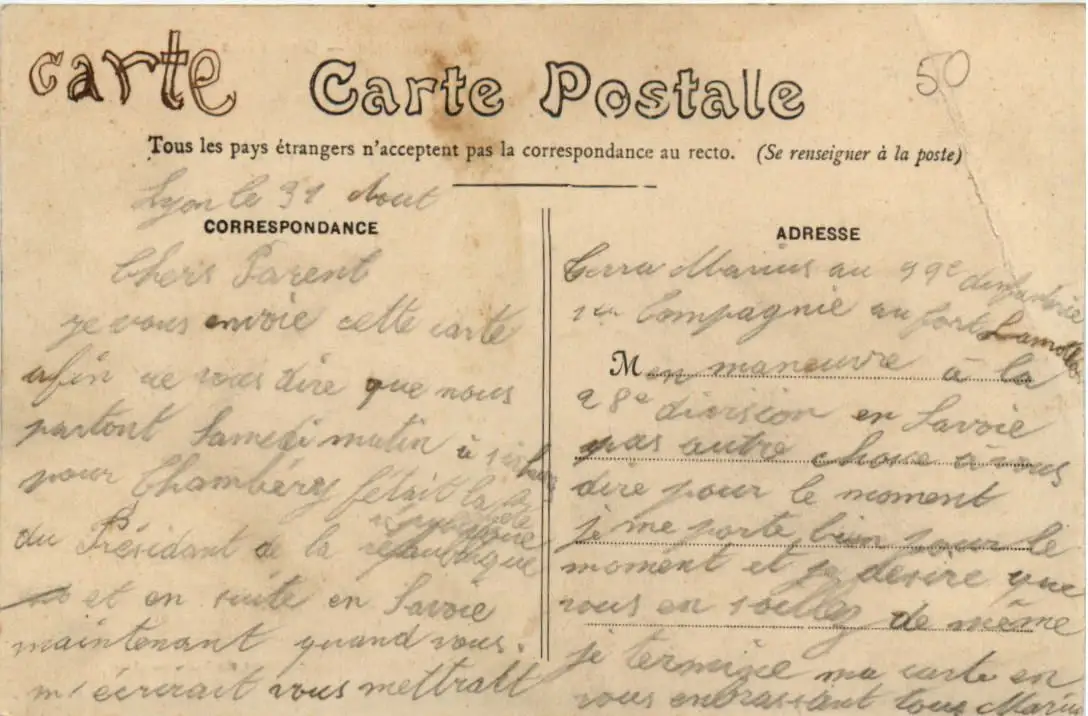 carte Carte Postale 50
Tous les pays étrangers n'acceptent pas la correspondance au recto. (Se renseigner à la poste)
Lyon le 31 Aout
CORRESPONDANCE
Chers Parent
je vous envoie cette carte
afin de vous dire que nous
partont Samedi matin à
pour Chambéry la
du Présidant de la république
et en suite en Savoie
maintenant quand vous
m'écrirait vous mettrait
ADRESSE
Marius au 99e dinfanterie
Compagnie au fort Lamothe
M en maneuvre à la
28e division en Savoie
pas autre chose à vous
dire pour le moment
je me porte bien pour le
moment et je désire que
vous en de même
je termine ma carte en
vous enbrassant tous Marius